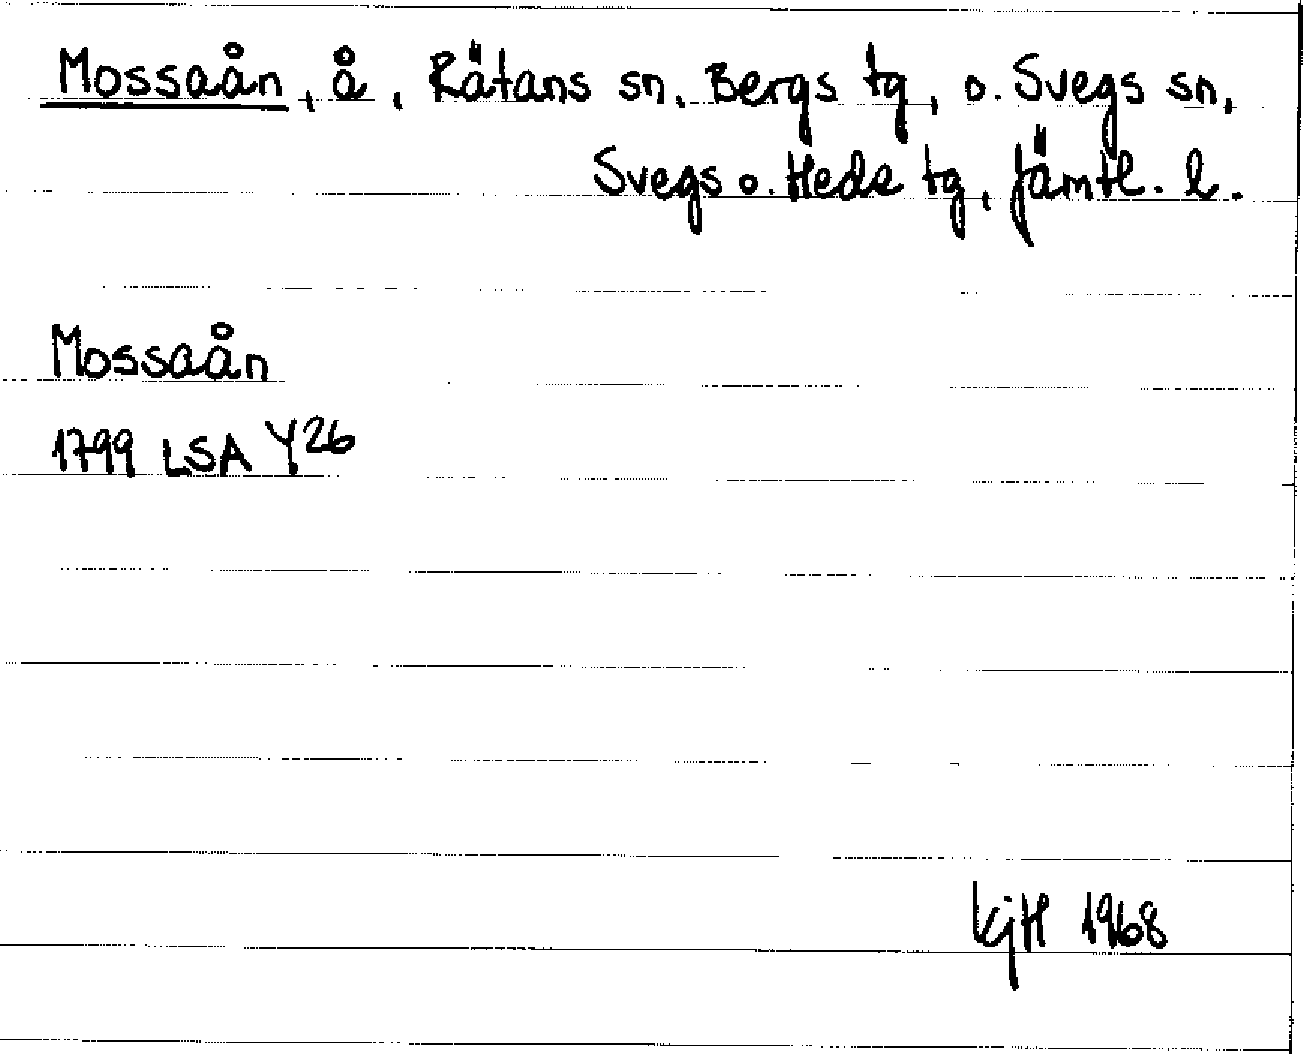 Mossaån, å, Rätans sn, Bergs tg, o. Svegs sn,
Svegs o. Heds tg, Jämtl. l.
Mossaån
1799 LSA Y26
KjH 1968